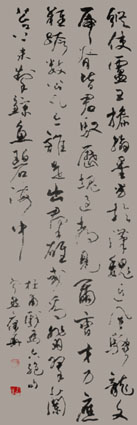 縱使盧王操翰墨劣於漢魏近風騷龍文
虎脊皆君馭歷塊過都見爾曹才力應
難跨數公凡今誰是出群雄或看翡翠蘭
苕上未掣鯨魚碧海中
杜甫戲為六絕句